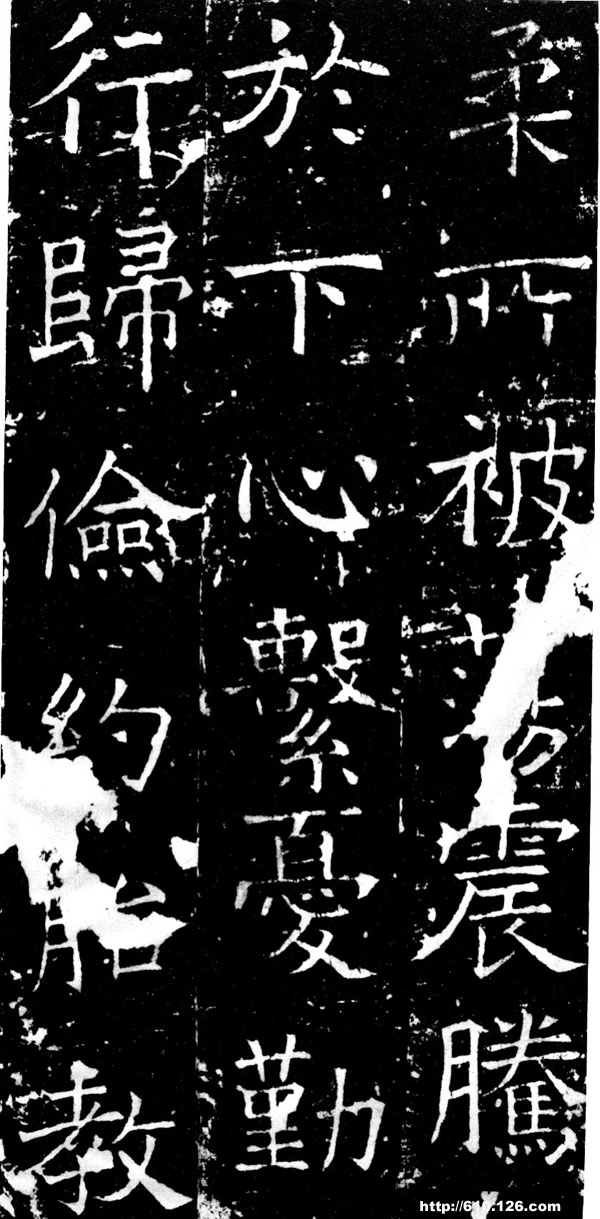 柔所被荡震騰
於下心繫憂勤
行歸儉約胎教
http://610.126.com